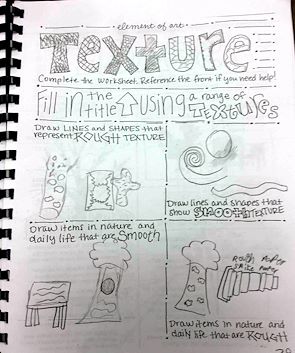 element of art
Texture
Complete the worksheet. Reference the front if you need help!
Fill in the title ↑ using a range of TEXTURES
Draw LINES and SHAPES that
represent ROUGH TEXTURE
Draw lines and shapes that
show SMOOTH TEXTURE
Draw items in nature and
daily life that are Smooth
Rough Paper
Draw items in nature and
daily life that are ROUGH